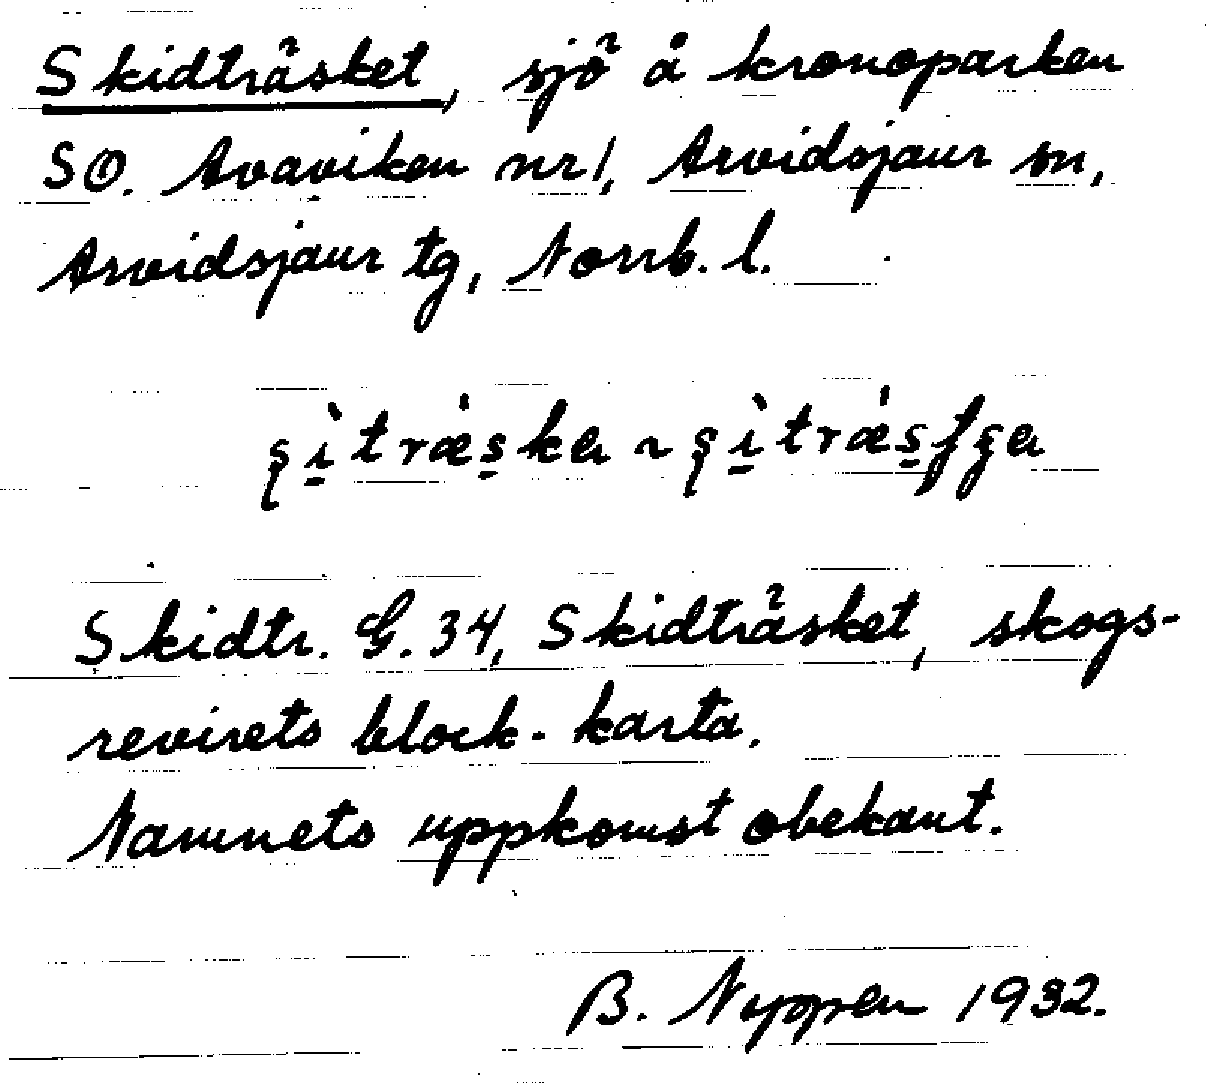 Skidträsket, sjö å kronoparken
SO. Avaviken nr 1, Arvidsjaur sn,
Arvidsjaur tg, Norrb. l.
Skidtr. G. 34, Skidträsket, skogs-
revirets block-karta.
Namnets uppkomst obekant.
B. Nyppen 1932.